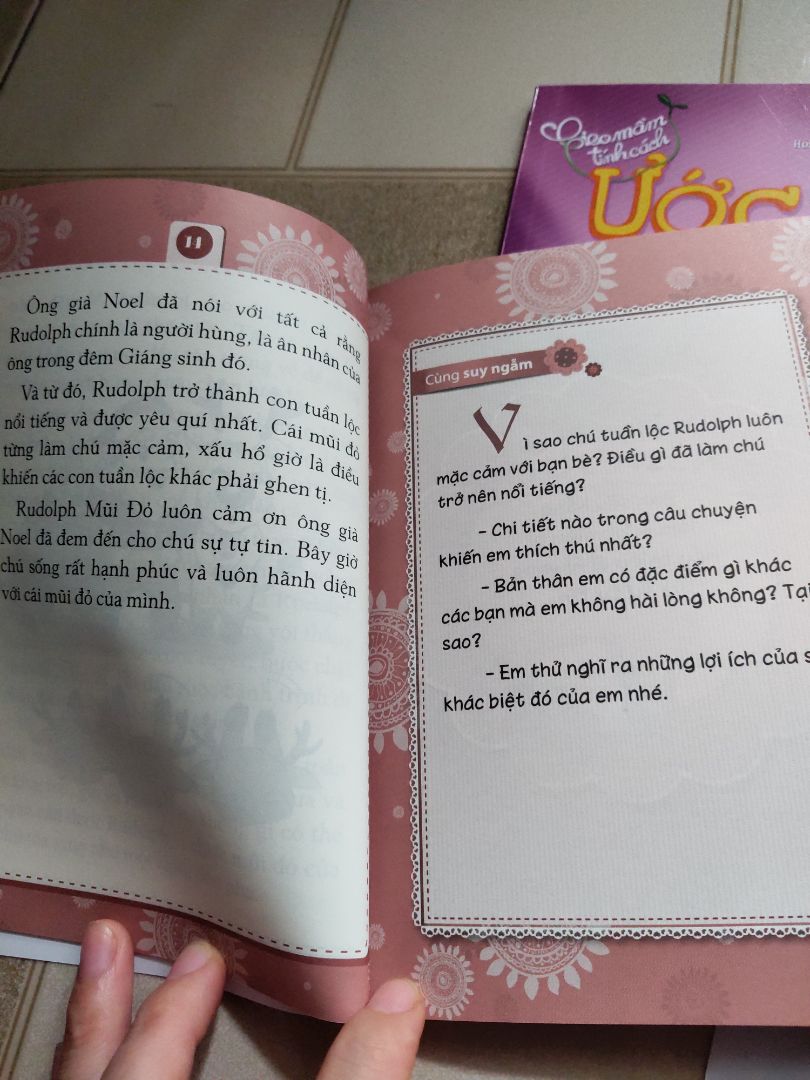 Gieo mầm
tính cách
ƯỚC
14
Ông già Noel đã nói với tất cả rằng
Rudolph chính là người hùng, là ân nhân của
ông trong đêm Giáng sinh đó.
Và từ đó, Rudolph trở thành con tuần lộc
nổi tiếng và được yêu quí nhất. Cái mũi đỏ
từng làm chú mặc cảm, xấu hổ giờ là điều
khiến các con tuần lộc khác phải ghen tị.
Rudolph Mũi Đỏ luôn cảm ơn ông già
Noel đã đem đến cho chú sự tự tin. Bây giờ
chú sống rất hạnh phúc và luôn hãnh diện
với cái mũi đỏ của mình.
Cùng suy ngẫm
Vì sao chú tuần lộc Rudolph luôn
mặc cảm với bạn bè? Điều gì đã làm chú
trở nên nổi tiếng?
– Chi tiết nào trong câu chuyện
khiến em thích thú nhất?
– Bản thân em có đặc điểm gì khác
các bạn mà em không hài lòng không? Tại
sao?
– Em thử nghĩ ra những lợi ích của
khác biệt đó của em nhé.